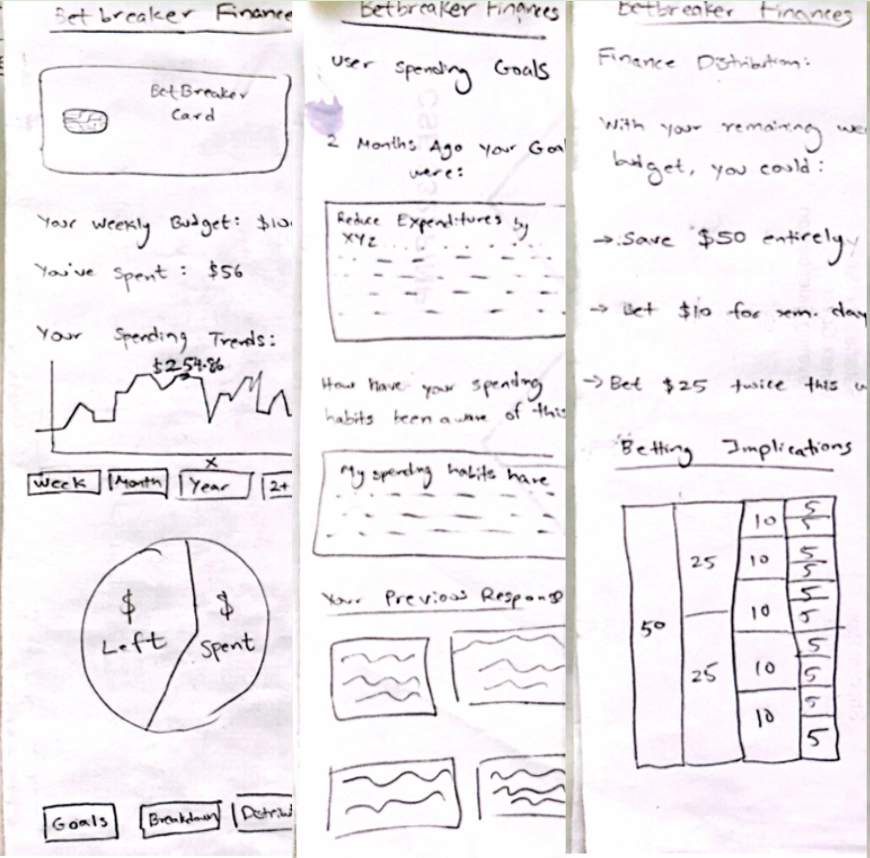 Betbreaker Finance
BetBreaker
Card
Your Weekly Budget: $10
You've Spent: $56
Your Spending Trends:
$254.86
x
Week
Month
Year
2+
$
Left
$
Spent
Goals
Breakdown
Distribu
Betbreaker Finances
User Spending Goals
2 Months Ago Your Goal
were:
Reduce Expenditures by
XYZ
How have your spending
habits been aware of this
My spending habits have
Your Previous Respons
Betbreaker Finances
Finance Distribution:
With your remaining wee
budget, you could:
→ Save $50 entirely
→ Bet $10 for rem. day
→ Bet $25 twice this w
Betting Implications
50
25
25
10
10
10
10
10
5
5
5
5
5
5
5
5
5
5